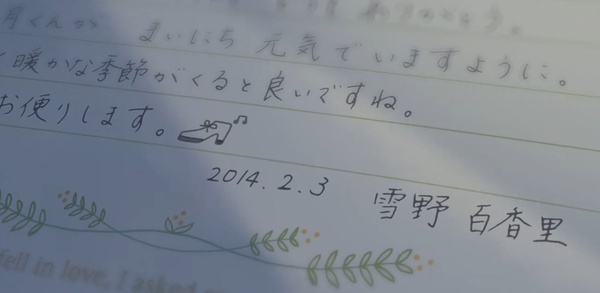 月くんが まいにち 元気でいますように。
く暖かな季節がくると良いですね。
お便りします。
2014.2.3 雪野 百香里
fell in love, I asked